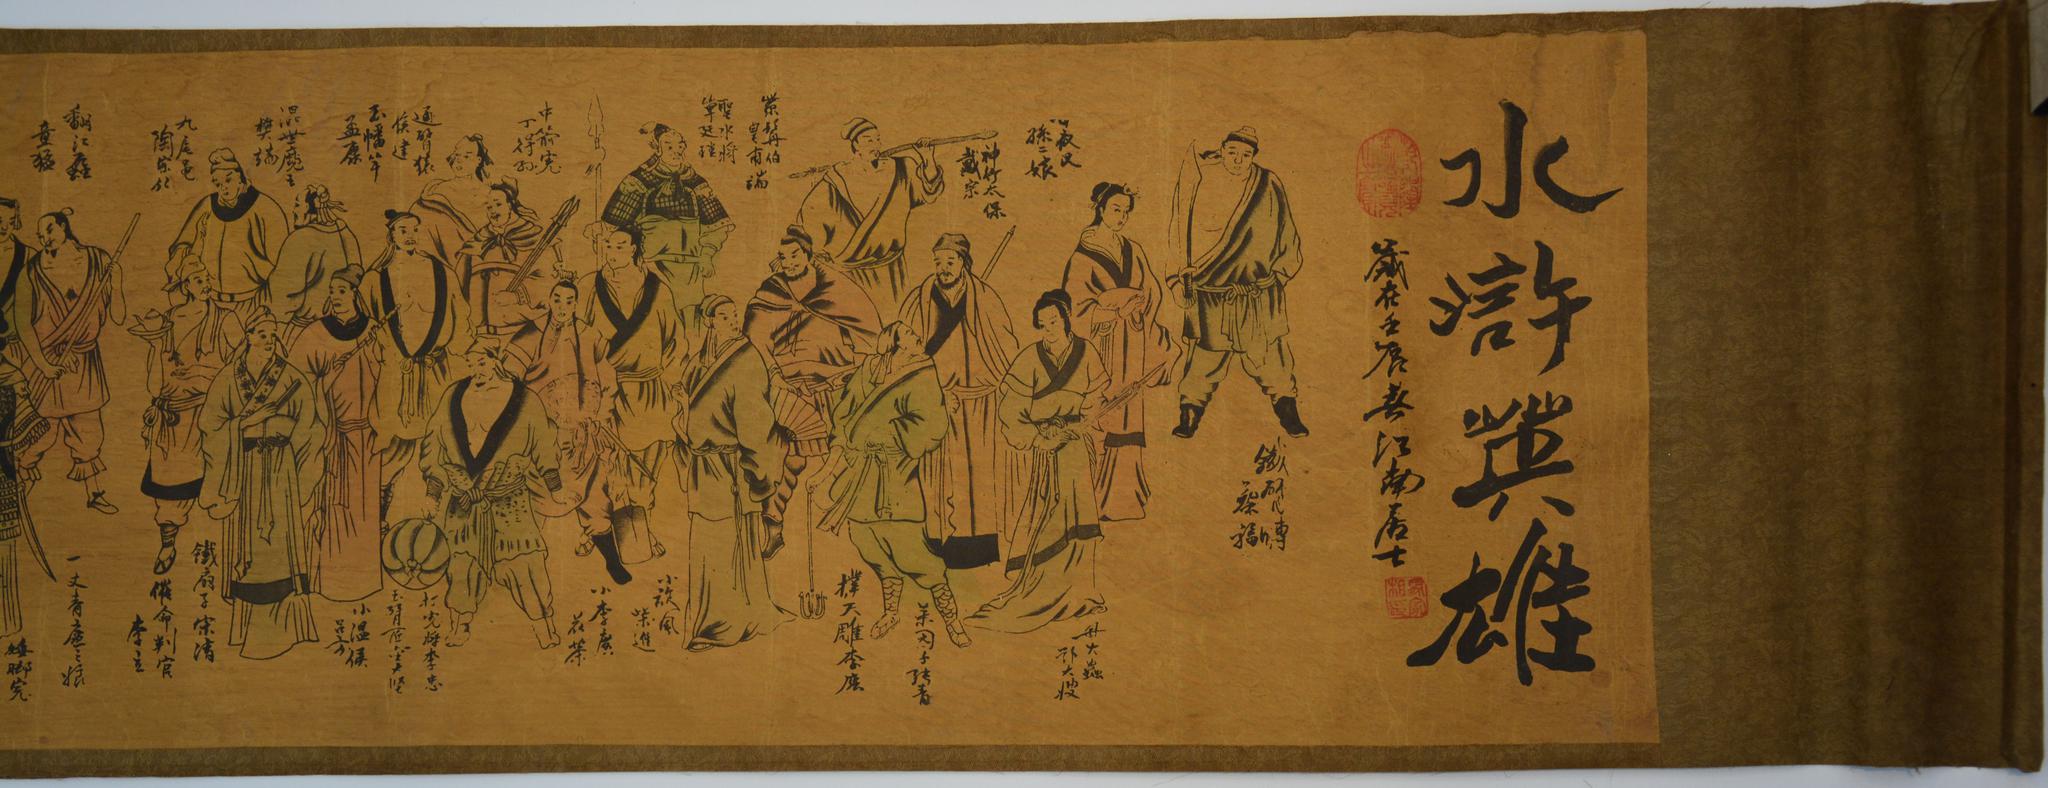 水滸英雄
歲在壬辰春江南居士
小鐵臂膊
蔡福
母夜叉
孫二娘
母大蟲
顧大嫂
神行太保
戴宗
撲天雕李應
紫髯伯
皇甫端
聖水將
單廷珪
小旋風
柴進
小李廣
花榮
中箭虎
丁得孙
打虎將李忠
玉臂匠金大坚
通臂猿
侯建
玉幡竿
孟康
小温侯
呂方
混世魔王
樊瑞
鐵扇子宋清
九尾龟
陶宗旺
催命判官
李立
翻江蜃
童猛
一丈青扈三娘
矮脚虎